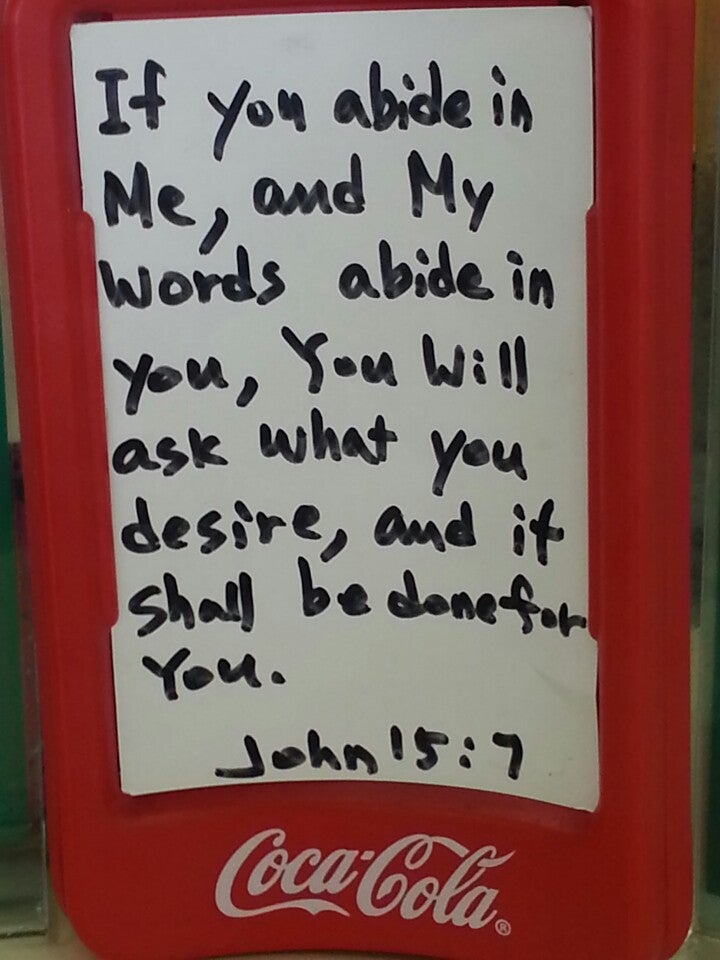 If you abide in
Me, and My
words abide in
you, You Will
ask what you
desire, and it
shall be done for
You.
John 15:7
Coca-Cola®